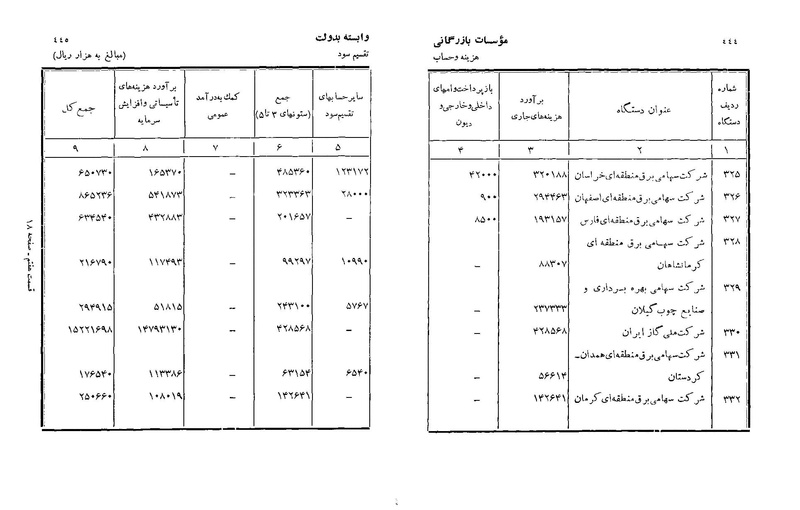 ۴۴۴
مؤسسات بازرگانی
هزینه وحساب
شماره ردیف دستگاه | عنوان دستگاه | برآورد هزینه‌های جاری | بازپرداخت وامهای داخلی وخارجی و دیون
۱ | ۲ | ۳ | ۴
۳۲۵ | شرکت سهامی برق منطقه‌ای خراسان | ۳۲۰۱۸۸ | ۴۲۰۰۰
۳۲۶ | شرکت سهامی برق منطقه‌ای اصفهان | ۲۹۴۴۶۳ | ۹۰۰
۳۲۷ | شرکت سهامی برق منطقه‌ای فارس | ۱۹۳۱۵۷ | ۸۵۰۰
۳۲۸ | شرکت سهامی برق منطقه ای
کرمانشاهان | ۸۸۳۰۷ | –
۳۲۹ | شرکت سهامی بهره برداری و
صنایع چوب گیلان | ۲۳۷۳۳۳ | –
۳۳۰ | شرکت ملی گاز ایران | ۴۲۸۵۶۸ | –
۳۳۱ | شرکت سهامی برق منطقه‌ای همدان –
کردستان | ۵۶۶۱۴ | –
۳۳۲ | شرکت سهامی برق منطقه‌ای کرمان | ۱۴۲۶۴۱ | –
وابسته بدولت
۴۴۵
تقسیم سود
(مبالغ به هزار ریال)
سایر حسابهای تقسیم سود | جمع (ستونهای ۳ تا ۵) | کمک به درآمد عمومی | برآورد هزینه‌های تأسیساتی وافزایش سرمایه | جمع کل
۵ | ۶ | ۷ | ۸ | ۹
۱۲۳۱۷۲ | ۴۸۵۳۶۰ | – | ۱۶۵۳۷۰ | ۶۵۰۷۳۰
۲۸۰۰۰ | ۳۲۳۳۶۳ | – | ۵۴۱۸۷۳ | ۸۶۵۲۳۶
– | ۲۰۱۶۵۷ | – | ۴۳۲۸۸۳ | ۶۳۴۵۴۰
۱۰۹۹۰ | ۹۹۲۹۷ | – | ۱۱۷۴۹۳ | ۲۱۶۷۹۰
۵۷۶۷ | ۲۴۳۱۰۰ | – | ۵۱۸۱۵ | ۲۹۴۹۱۵
– | ۴۲۸۵۶۸ | – | ۱۴۷۹۳۱۳۰ | ۱۵۲۲۱۶۹۸
۶۵۴۰ | ۶۳۱۵۴ | – | ۱۱۳۳۸۶ | ۱۷۶۵۴۰
– | ۱۴۲۶۴۱ | – | ۱۰۸۰۱۹ | ۲۵۰۶۶۰
قسمت هفتم - صفحه ۱۸